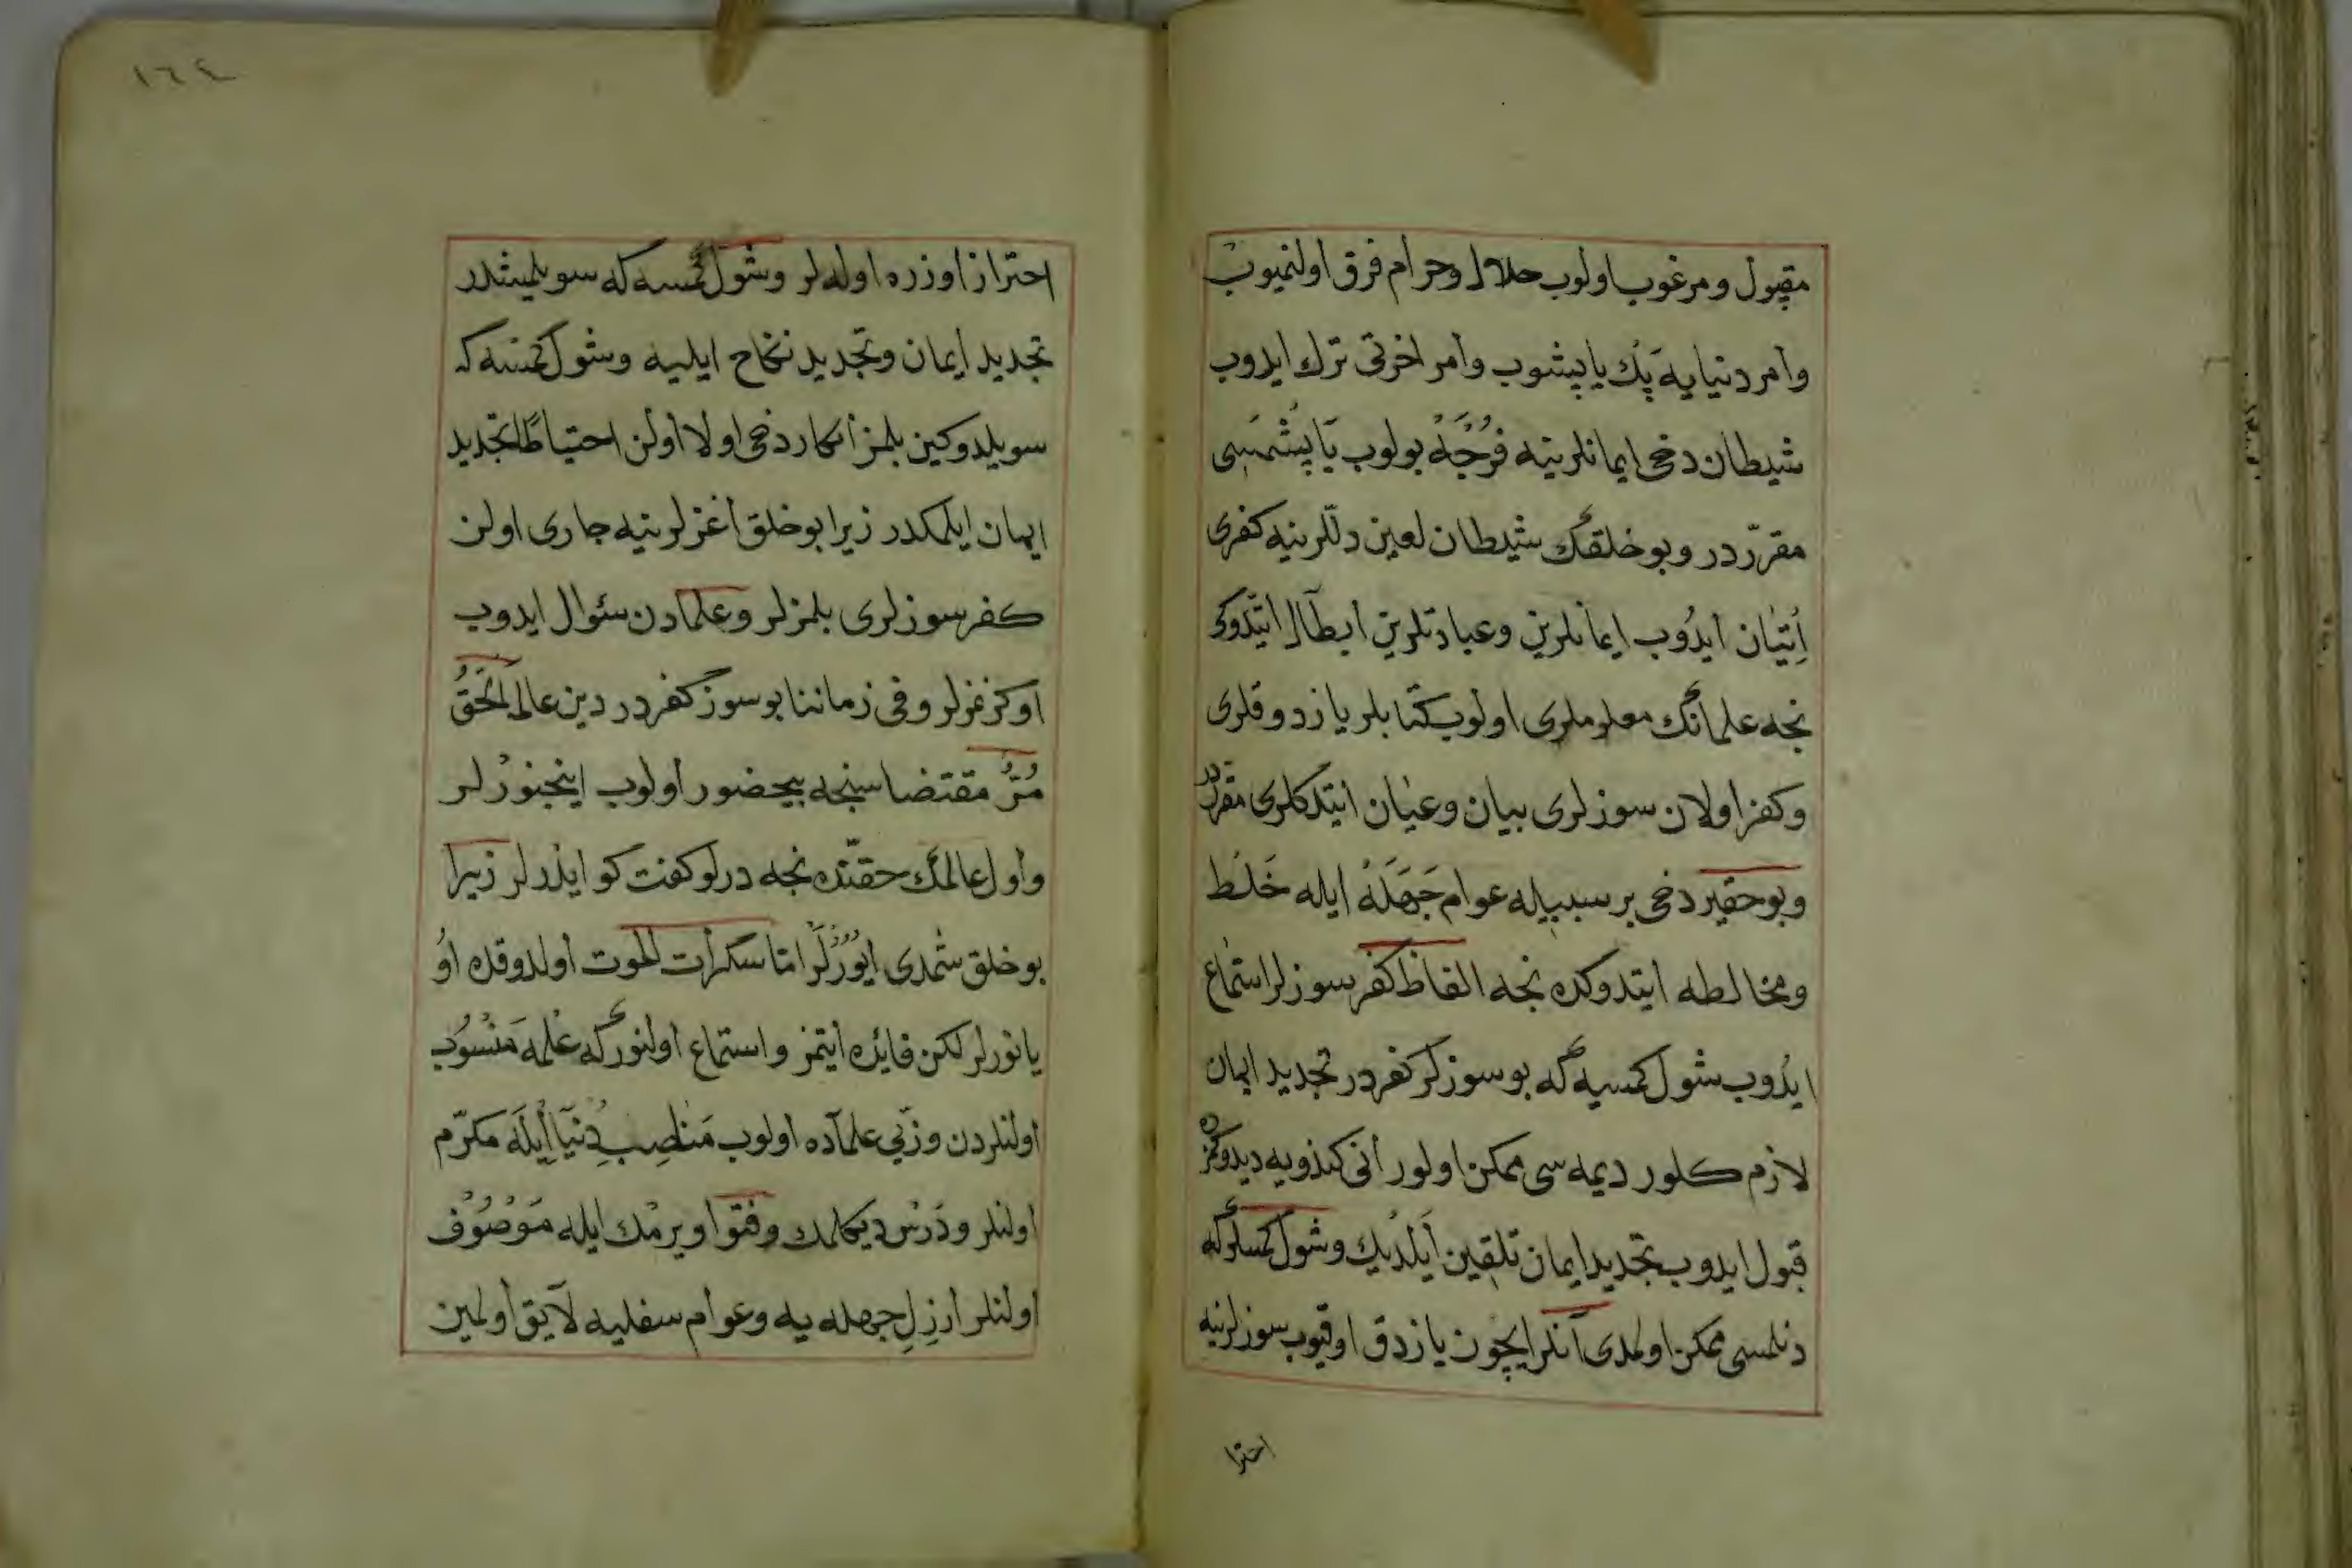 مقبول ومرغوب اولوب حلال وحرام فرق اولنميوب
وامر دنيايه پك ياپيشوب وامر اخرتى ترك ايدوب
شيطان دخى ايمانلرينه فُرْجَهْ بولوب يَاپِشْمَسِى
مقرّر در وبو خلقڭ شيطان لعين دللرينه كفرى
اِتيٰان ايدُوب ايمانلرين وعبادتلرين ابطال ايتدوكى
نجه علمانڭ معلوملرى اولوب كتابلر يازدوقلرى
وكفر اولان سوزلرى بيان وعيان ايتدكلرى مقرردر
وبو حقير دخى بر سببيله عوام جَهَلَهْ ايله خَلْط
ومخالطه ايتدوكده نجه الفاظ كفر سوزلر استماع
ايدُوب شول كمسيه كه بو سوزلر كفر در تجديد ايمان
لازم كلور ديمه سى ممكن اولور انى كندويه ديدوكمزده
قبول ايدوب تجديد ايمان تلقين اَيْلَدِيك وشول كمسلر كه
دنلمسى ممكن اولمدى آنلر ايچون يازدق اوقيوب سوزلرينه
احترا
١٦٤
احتراز اوزره اوله لر وشول كمسه كه سويلميشدر
تجديد ايمان وتجديد نكاح ايليه وشول كمسه كه
سويلدوكين بلمز انكار دخى اولا اولن احتياطًا تجديد
ايمان ايلمكدر زيرا بو خلق اغزلرينه جارى اولن
كفر سوزلرى بلمزلر وعلمادن سئوال ايدوب
اوكرنمزلر وفى زماننا بو سوز كفر در دين عالم الْحَقُّ
مُرٌّ مقتضاسنجه بيحضور اولوب اينجنورْلر
واول عالمڭ حقنده نجه درلو كفت كو ايدرلر زيرا
بو خلق شمدى ايُورْلَرْ امّا سكرات الموت اولدوقده اُو
يانورلر لكن فايْده ايتمز واستماع اولنور كه علمه مَنْسُوب
اولنلردن وزىّ علماده اولوب مَناصِبِ دُنْيَا اِيلَه مكرّم
اولنلر ودَرْس ديكلمك وفتوا ويرمْك ايله مَوْصُوْف
اولنلر ارزِلِ جهله يه وعوام سفليه لايق اولمين